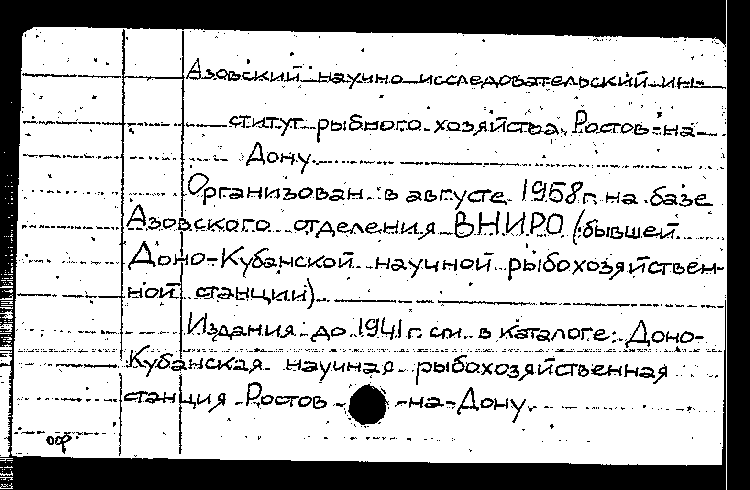 Азовский научно исследовательский ин-
ститут рыбного хозяйства, Ростов-на-
Дону.
Организован в августе 1958г. на базе
Азовского отделения ВНИРО (бывшей
Доно-Кубанской научной рыбохозяйствен-
ной станции).
Издания до 1941г. см. в каталоге: Доно-
Кубанская научная рыбохозяйственная
станция Ростов - -на-Дону.